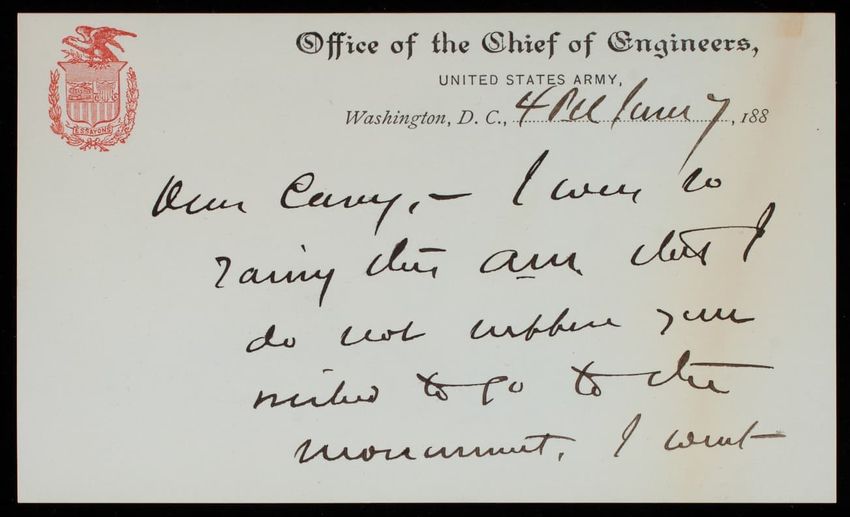 ESSAYONS
Office of the Chief of Engineers,
UNITED STATES ARMY,
Washington, D. C., 4 PM June 7, 188
Dear Casey, – It was so
rainy this am that I
do not suppose you
wished to go to the
monument. I went